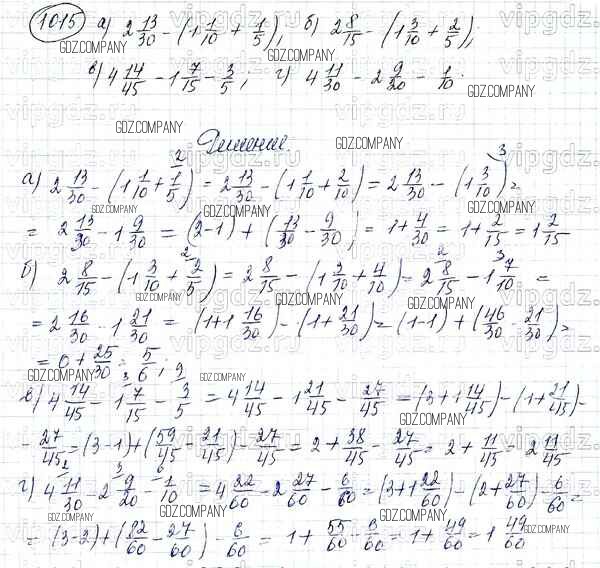 1015 а) 2 13/30 - (1 1/10 + 1/5); б) 2 8/15 - (1 3/10 + 2/5);
в) 4 14/45 - 1 7/15 - 3/5; г) 4 11/30 - 2 9/20 - 1/10.
Решение.
а) 2 13/30 - (1 1/10 + 1/5) = 2 13/30 - (1 1/10 + 2/10) = 2 13/30 - (1 3/10) =
= 2 13/30 - 1 9/30 = (2-1) + (13/30 - 9/30) = 1 + 4/30 = 1 + 2/15 = 1 2/15
б) 2 8/15 - (1 3/10 + 2/5) = 2 8/15 - (1 3/10 + 4/10) = 2 8/15 - 1 7/10 =
= 2 16/30 - 1 21/30 = (1+1 16/30) - (1 + 21/30) = (1-1) + (46/30 - 21/30) =
= 0 + 25/30 = 5/6;
в) 4 14/45 - 1 7/15 - 3/5 = 4 14/45 - 1 21/45 - 27/45 = (3+1 14/45) - (1 + 21/45) -
- 27/45 = (3-1) + (59/45 - 21/45) - 27/45 = 2 + 38/45 - 27/45 = 2 + 11/45 = 2 11/45
г) 4 11/30 - 2 9/20 - 1/10 = 4 22/60 - 2 27/60 - 6/60 = (3+1 22/60) - (2 + 27/60) - 6/60 =
= (3-2) + (82/60 - 27/60) - 6/60 = 1 + 55/60 - 6/60 = 1 + 49/60 = 1 49/60
GDZ.COMPANY
vipgdz.ru